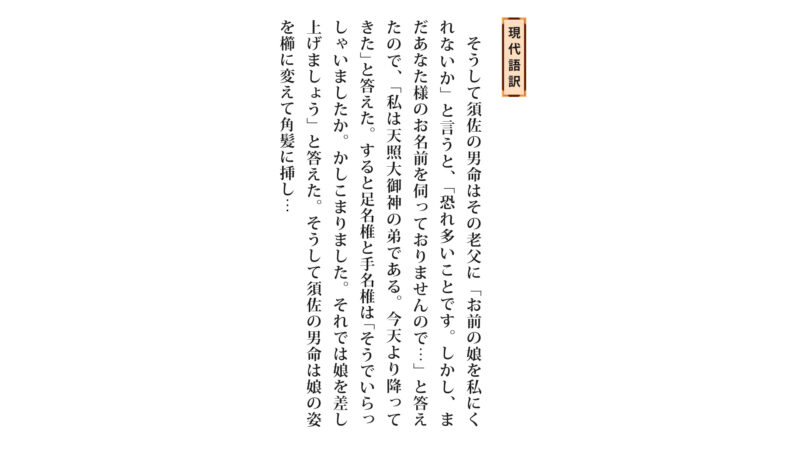 現代語訳
　そうして須佐の男命はその老父に「お前の娘を私にく
れないか」と言うと、「恐れ多いことです。しかし、ま
だあなた様のお名前を伺っておりませんので…」と答え
たので、「私は天照大御神の弟である。今天より降って
きた」と答えた。すると足名椎と手名椎は「そうでいらっ
しゃいましたか。かしこまりました。それでは娘を差し
上げましょう」と答えた。そうして須佐の男命は娘の姿
を櫛に変えて角髪に挿し…